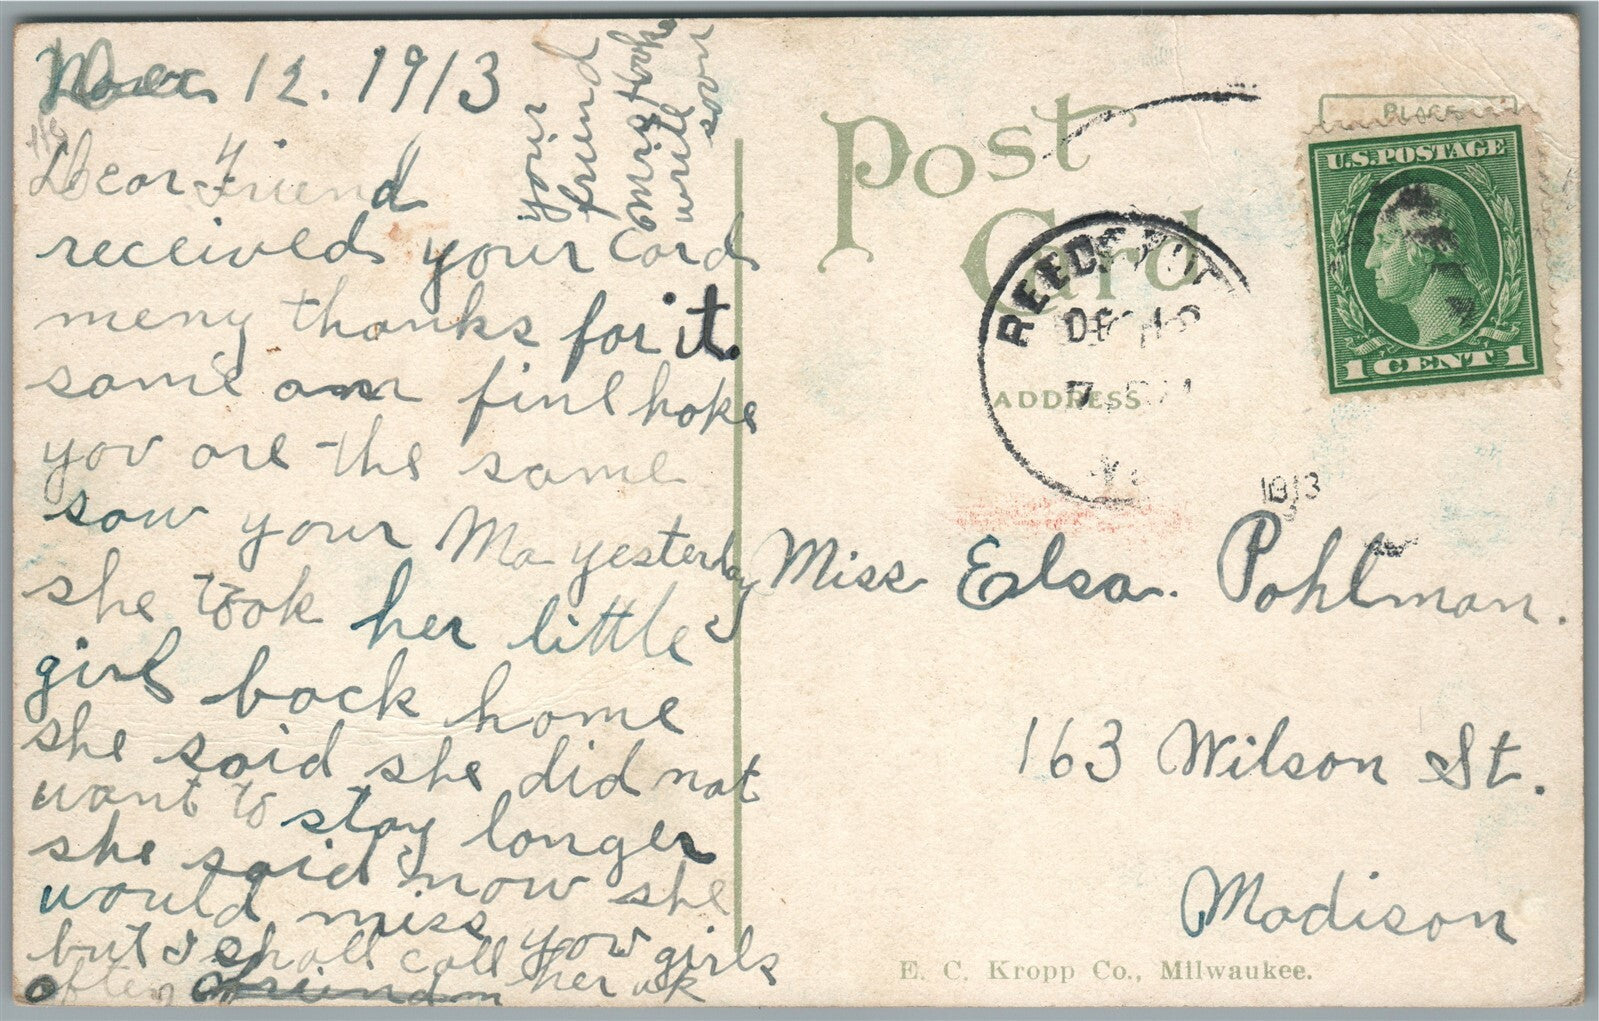 12. 1913
Dear Friend
received your Card
meny thanks for it.
same am fine hoke
you are the same
saw your Ma yesterday
she took her little
girl back home
she said she did not
want to stay longer
she said now she
would miss you girls
but I shall call her
often
your
friend
write
soon
Post
Card
PLACE
U.S. POSTAGE
1 CENT 1
REEDS
DEC
7
ADDRESS
1913
Miss Elsa. Pohlman.
163 Wilson St.
Madison
E. C. Kropp Co., Milwaukee.